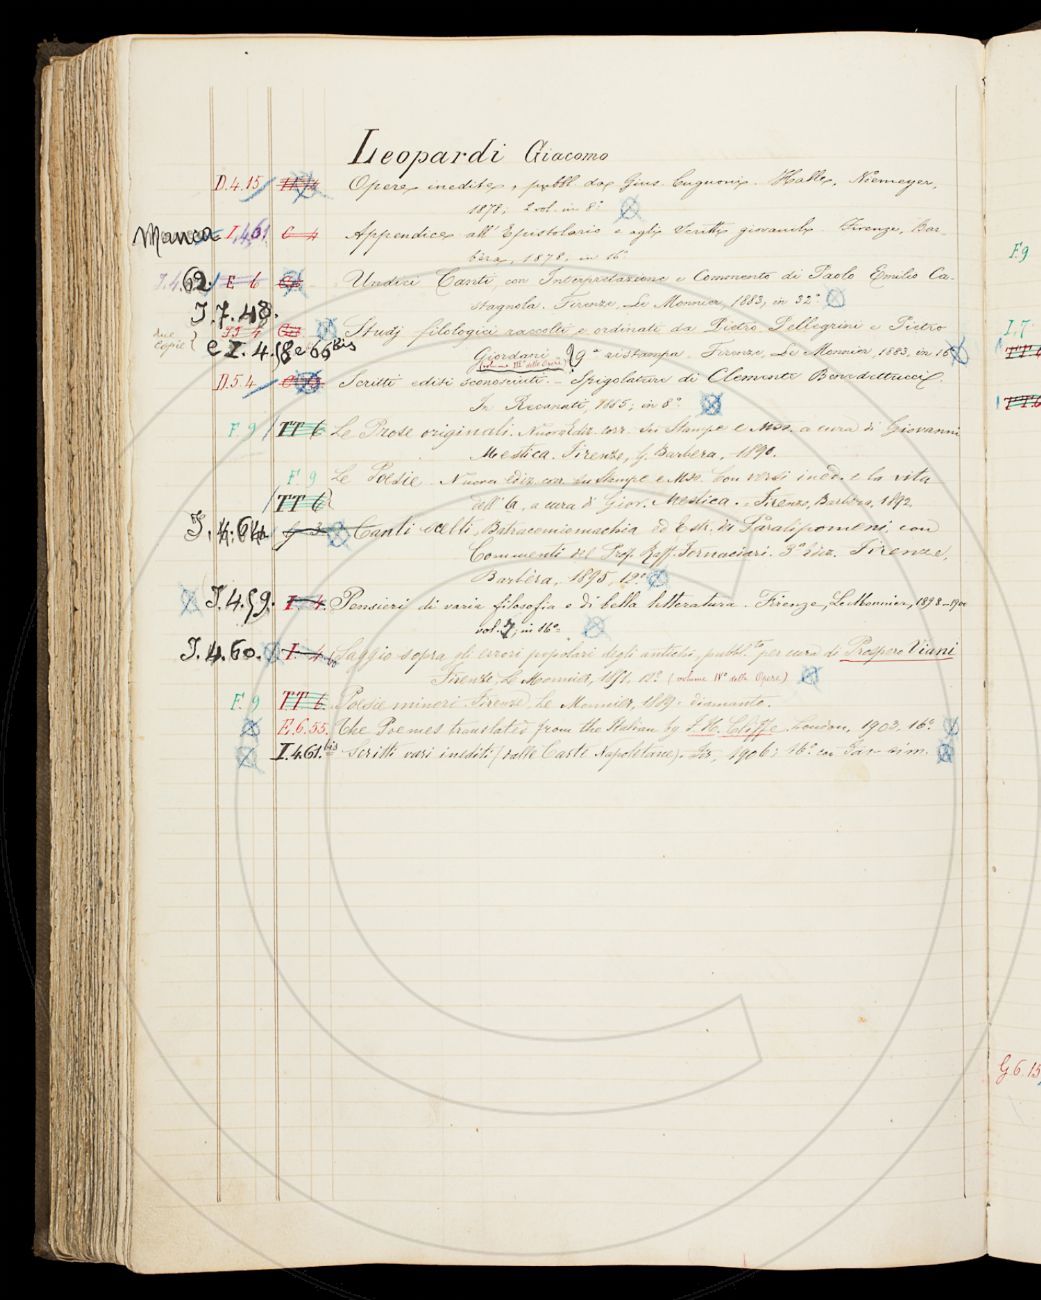 Leopardi Giacomo
D.4.15 Opere inedite, pubbl. da Gius. Cugnoni. Halle, Niemeyer,
1878; 2 vol. in 8°
Manca I.4.61 C 4 Appendice all' Epistolario e agli Scritti giovanili. Firenze, Bar-
bèra, 1878, in 16°
I.4. 62 E 6 Undici Canti con Interpretazione e Commento di Paolo Emilio Ca-
stagnola. Firenze, Le Monnier, 1883, in 32°
I.7.48.
due copie Studj filologici raccolti e ordinati da Pietro Pellegrini e Pietro
e I.4.58 e 66 bis Giordani 9a ristampa. Firenze, Le Monnier, 1883, in 16°
(volume III° delle Opere)
D.5.4 Scritti editi sconosciuti. - Spigolature di Clemente Benedettucci.
In Recanati, 1885; in 8°
F 9 TT 6 Le Prose originali. Nuova Ediz. corr. su Stampe e Mss. a cura di Giovanni
Mestica. Firenze, G. Barbèra, 1890.
F. 9 Le Poesie. Nuova ediz. corr. su Stampe e Mss. Con versi ined. e la vita
TT 6 dell' A, a cura di Giov. Mestica. Firenze, Barbèra, 1892.
I.4.64 G 3 Canti scelti, Batracomiomachia ed Estr. dai Paralipomeni con
Commenti del Prof. Raff. Fornaciari. 3a ediz. Firenze,
Barbèra, 1895, 12°
I.4.59. I 4 Pensieri di varia filosofia e di bella letteratura. Firenze, Le Monnier, 1898-1900
vol. 7, in 16°
I.4.60. I 4 Saggio sopra gli errori popolari degli antichi, pubbl.to per cura di Prospero Viani
Firenze, Le Monnier, 12° (volume IV° delle Opere)
F. 9 TT 6 Poesie minori. Firenze, Le Monnier, 1889. diamante.
E.6.55. The Poemes translated from the Italian by Cliffe. London, 1903, 16°
I.4.61.bis Scritti vari inediti (dalle Carte Napoletane). Fir., 1906; 16°
F.9
I.7
TT 6
TT 6
G.6.15